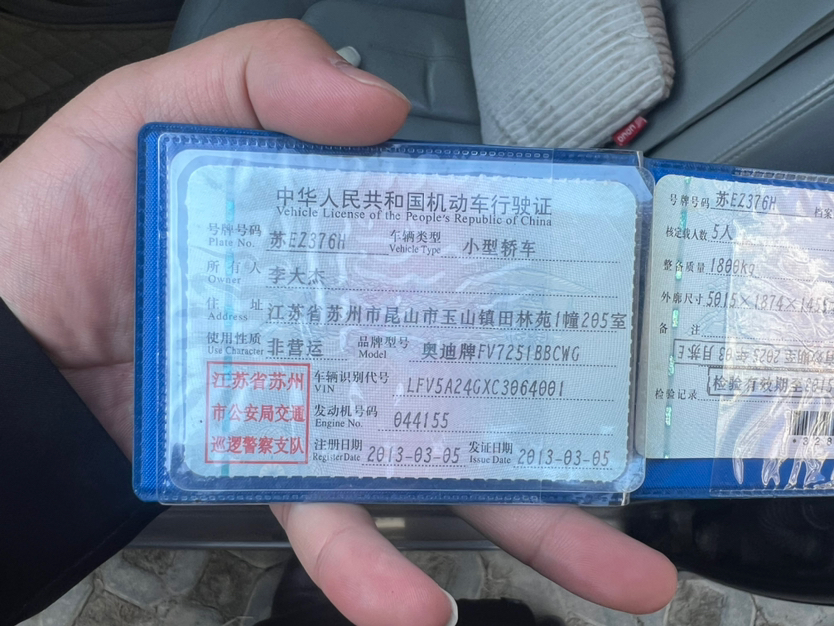 中华人民共和国机动车行驶证
Vehicle License of the People's Republic of China
号牌号码 苏EZ376H 车辆类型 小型轿车
Plate No. Vehicle Type
所有人 李大杰
Owner
住址 江苏省苏州市昆山市玉山镇田林苑1幢205室
Address
使用性质 非营运 品牌型号 奥迪牌FV7251BBCWG
Use Character Model
江苏省苏州
市公安局交通
巡逻警察支队
车辆识别代号 LFV5A24GXC3064001
VIN
发动机号码 044155
Engine No.
注册日期 2013-03-05 发证日期 2013-03-05
Register Date Issue Date
号牌号码 苏EZ376H
核定载人数 5人
整备质量 1800Kg
外廓尺寸 5015×1874×1455
备注
检验记录
检验有效期至